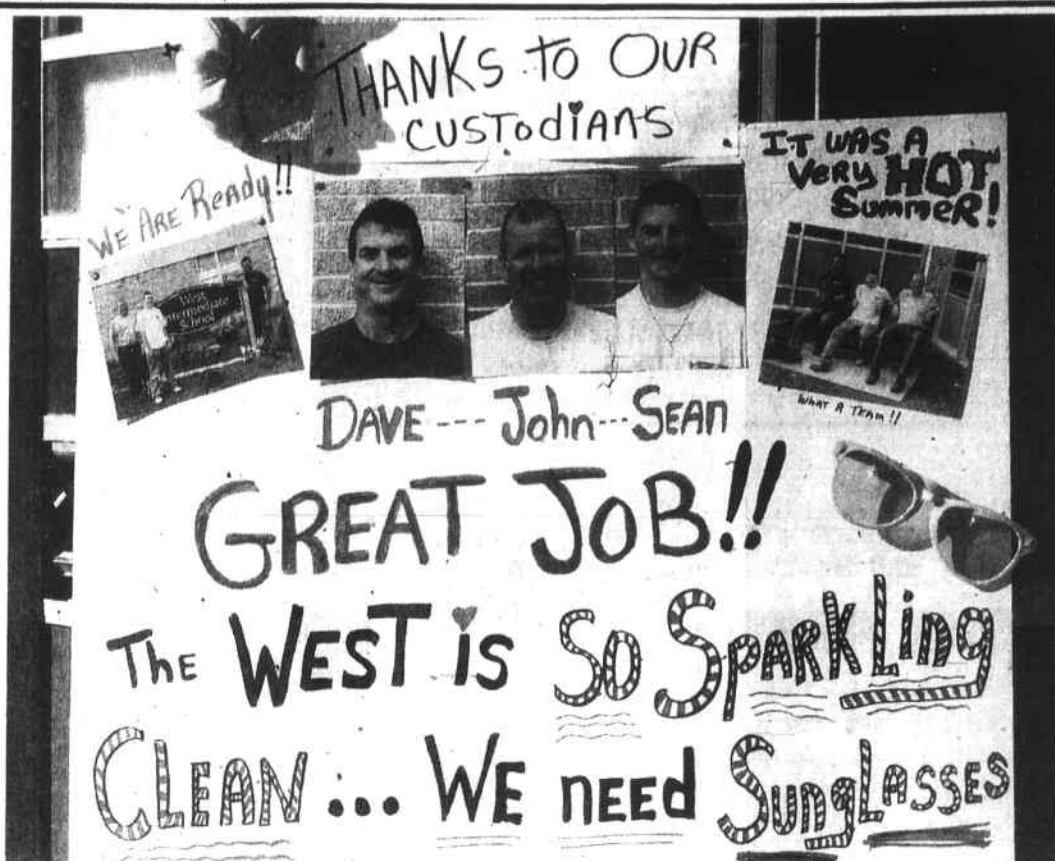 THANKS to OUR
CUSTodiANS
WE ARE Ready!!
West
Intermediate
School
IT WAS A
VeRy HOT
SummeR!
WHAT A TEAM!!
DAVE --- John --- SEAN
GREAT JOB!!
The WEST is SO SPARKLing
CLEAN ... WE need SungLASSES